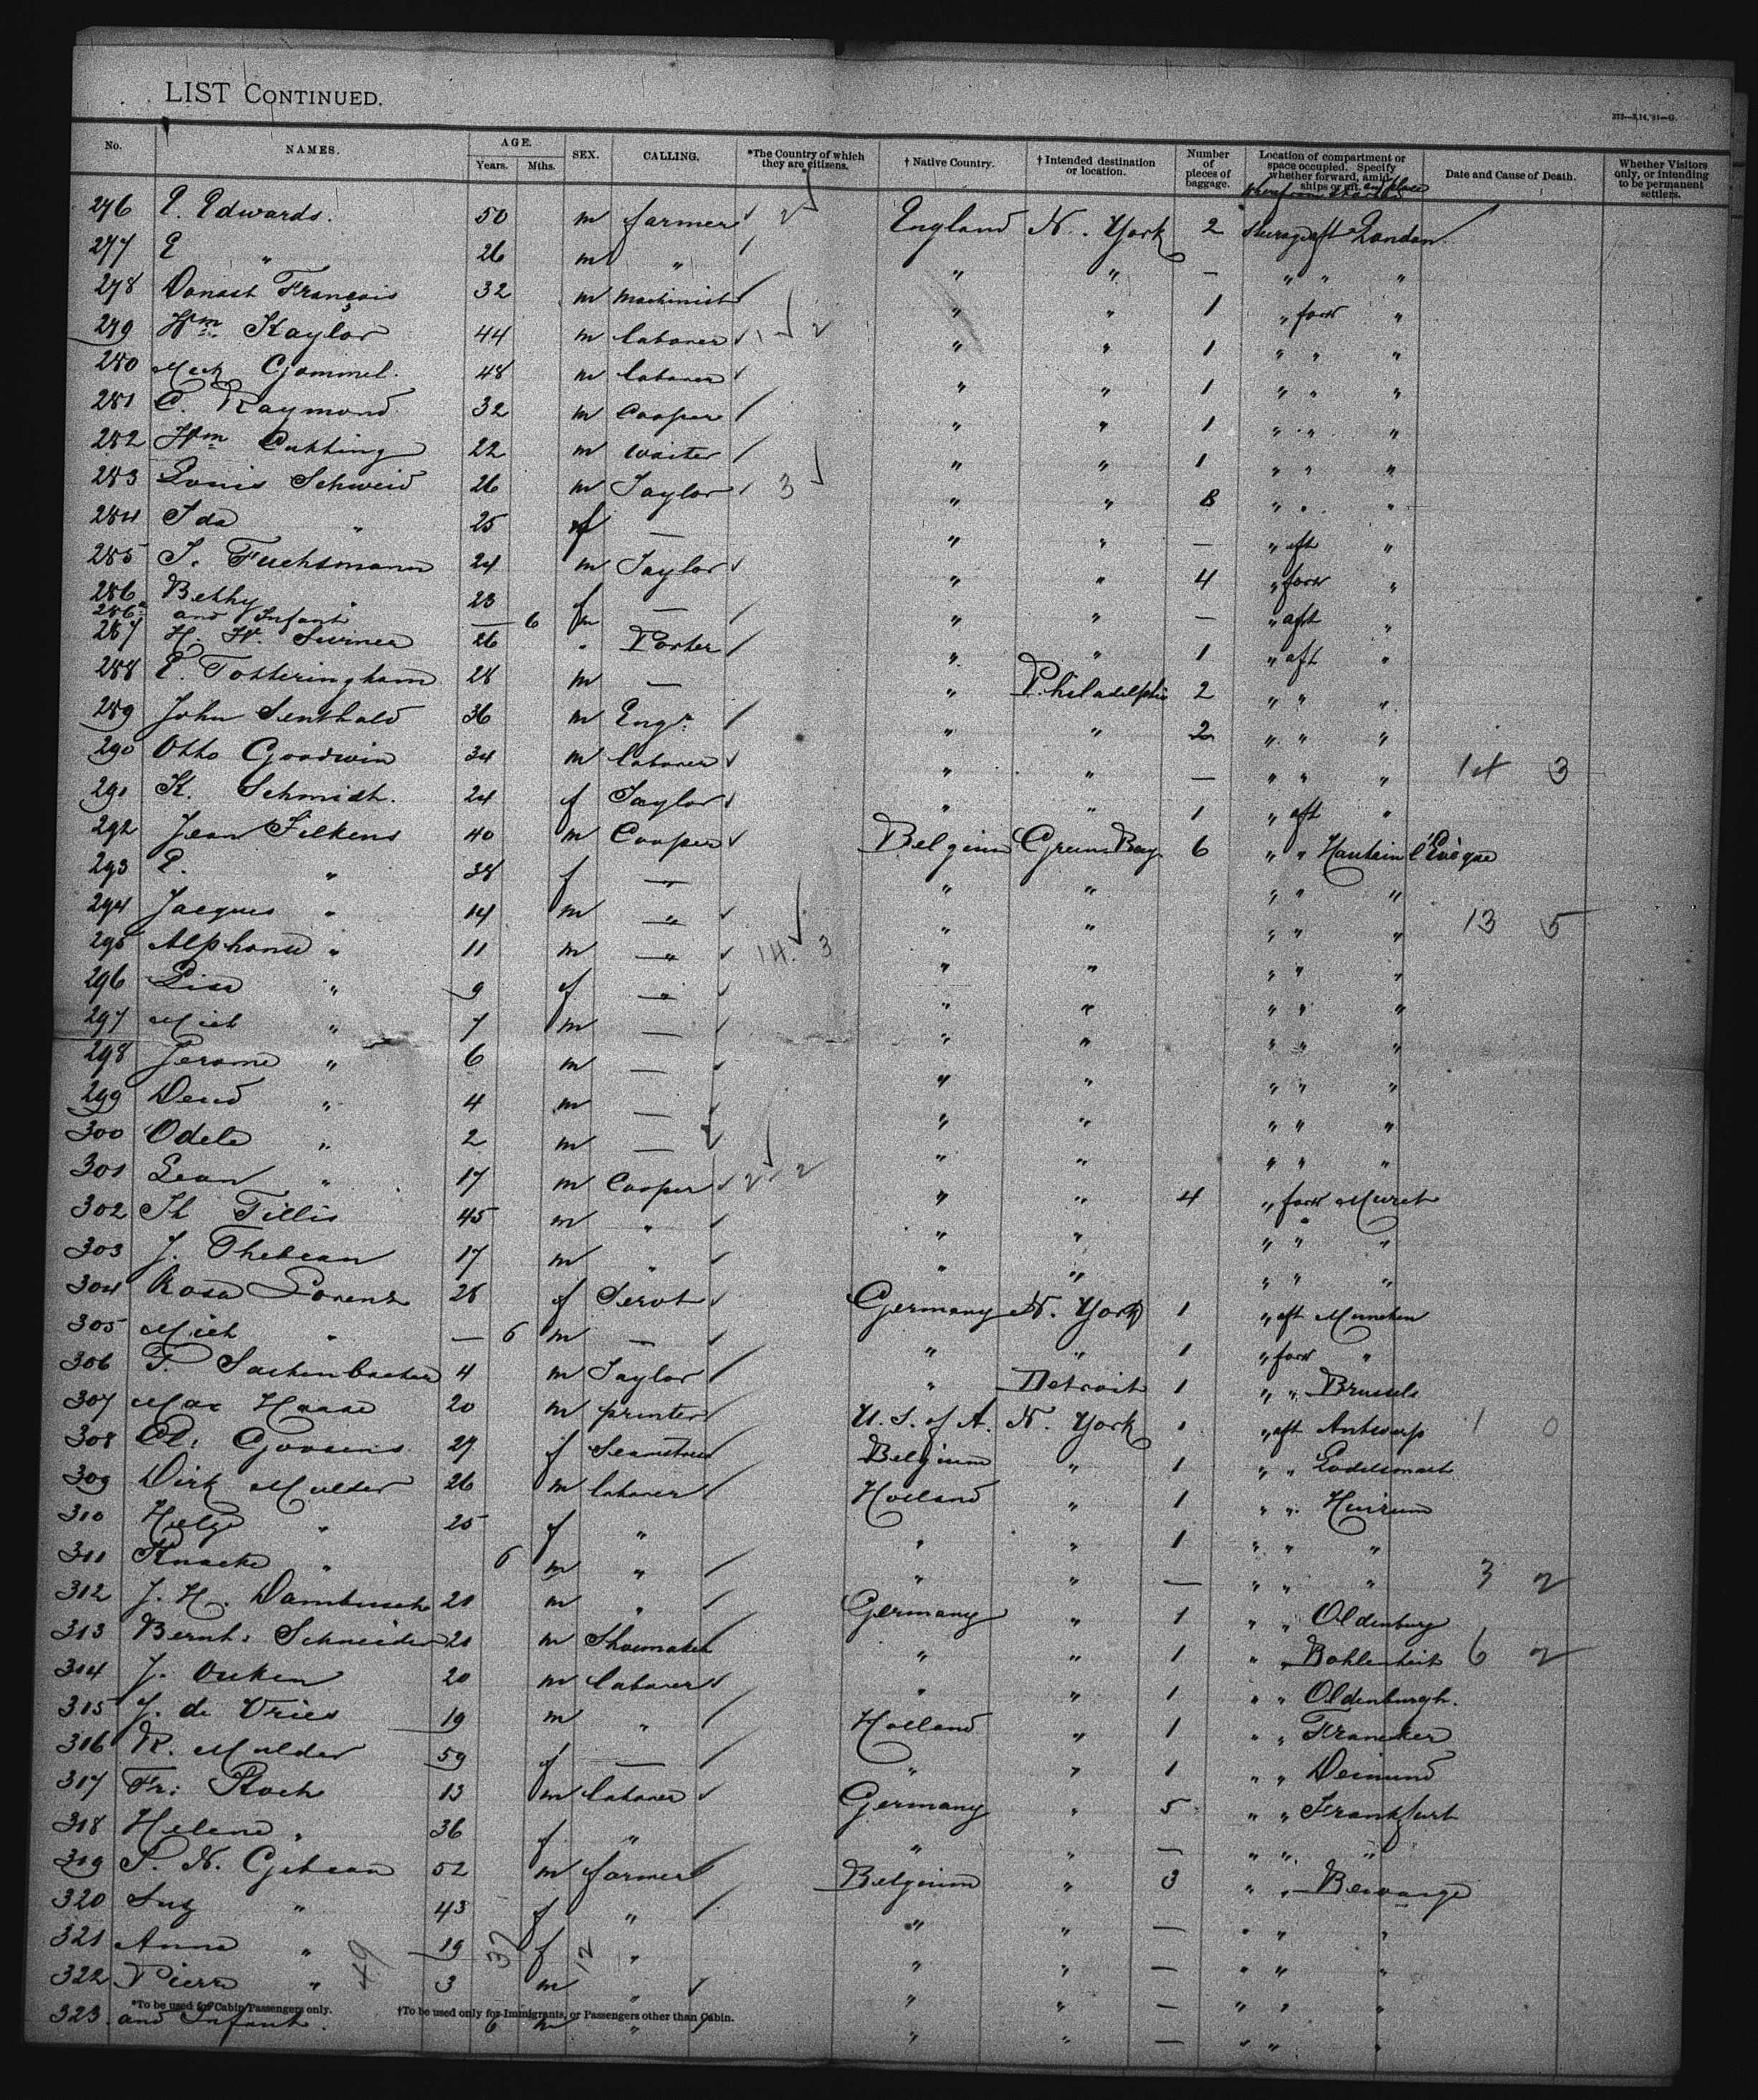 LIST CONTINUED.
273—3,14,'91—G.
No. NAMES. AGE. Years. Mths. SEX. CALLING. *The Country of which they are citizens. † Native Country. † Intended destination or location. Number of pieces of baggage. Location of compartment or space occupied. Specify whether forward, amidships or aft. Date and Cause of Death. Whether Visitors only, or intending to be permanent settlers.
276 E. Edwards. 50 m farmer England N. York 2 London
277 E " 26 m " " " — " " "
278 Donast François 32 m Machinist " " 1 " forw "
279 Wm Kaylor 44 m laborer " " 1 " " "
280 Gommel. 48 m laborer " " 1 " " "
281 C. Raymond 32 m Cooper " " 1 " " "
282 Wm Cutting 22 m waiter " " 1 " " "
283 Louis Schweid 26 m Taylor 3 " " 8 " " "
284 Ida " 25 f — " " — " aft "
285 J. Fuchsmann 24 m Taylor " " 4 " forw "
286 Bethy " 23 f — " " — " aft "
286a and Infant — 6 m
287 H. W. 26 " Porter " " 1 " aft "
288 E. Totteringham 28 m — " Philadelphia 2 " " "
289 John Senthald 36 m Engr. " " 2 " " "
290 Otto Goodwin 34 m laborer " " — " " " 14 3
291 K. Schmidt. 24 f Taylor " " 1 " aft "
292 Jean Filkens 40 m Cooper Belgium Green Bay 6 " " Hautain l'Evêque
293 E. " 38 f — " " " " "
294 Jacques " 14 m — " " " " " 13 5
295 Alphonse " 11 m — 14 3 " " " " "
296 Lisa " 9 f — " " " " "
297 " 7 m — " " " " "
298 Jerome " 6 m — " " " " "
299 " 4 m — " " " " "
300 Odele " 2 m — " " " " "
301 Lean " 17 m Cooper 2 2 " " 4 " forw
302 Th Tillis 45 m " " " " " "
303 J. Thebean 17 m " " " " " "
304 Rosa Lorenz 28 f Servt Germany N. York 1 " aft Munchen
305 " — 6 m — " " 1 " forw "
306 F. 4 m Taylor " Detroit 1 " " Brussels
307 Max Haase 20 m printer U. S. of A. N. York " aft Antwerp 1 0
308 Goosens 29 f Seamstress Belgium " 1 " "
309 Dirk Mulder 26 m laborer Holland " 1 " "
310 " 25 f " " " 1 " " "
311 " 6 m " " " — " " " 3 2
312 J. H. Dambusch 21 m " Germany " 1 " " Oldenburg
313 Bernh: Schneider 21 m Shoemaker " " 1 " " 6 2
314 J. Ouken 20 m laborer " " 1 " " Oldenburgh.
315 J. de Vries 19 m " Holland " 1 " " Franeker
316 R. Mulder 59 f — " " 1 " "
317 Fr: Koch 13 m laborer Germany " 5 " " Frankfurt
318 Helene " 36 f " " " — " " "
319 52 m farmer Belgium " 3 " "
320 " 43 f " " " — " " "
321 Anna " 19 f " " " — " " "
322 Pierre " 3 m " " " — " " "
*To be used for Cabin Passengers only. †To be used only for Immigrants, or Passengers other than Cabin.
323 and Infant. 6 m " " " — " " "